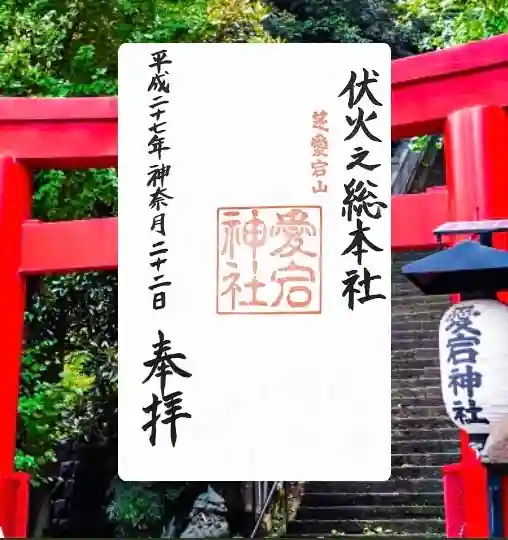 伏火之総本社
芝愛宕山
愛宕
神社
平成二十七年神奈月二十二日
奉拝
愛宕神社